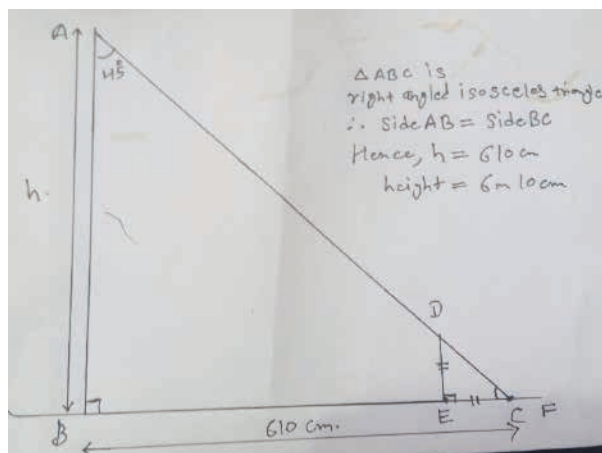 A
45°
△ABC is
right angled isosceles triangle
∴ Side AB = Side BC
Hence, h = 610 cm
height = 6 m 10 cm
h.
D
B
E
C
F
610 cm.